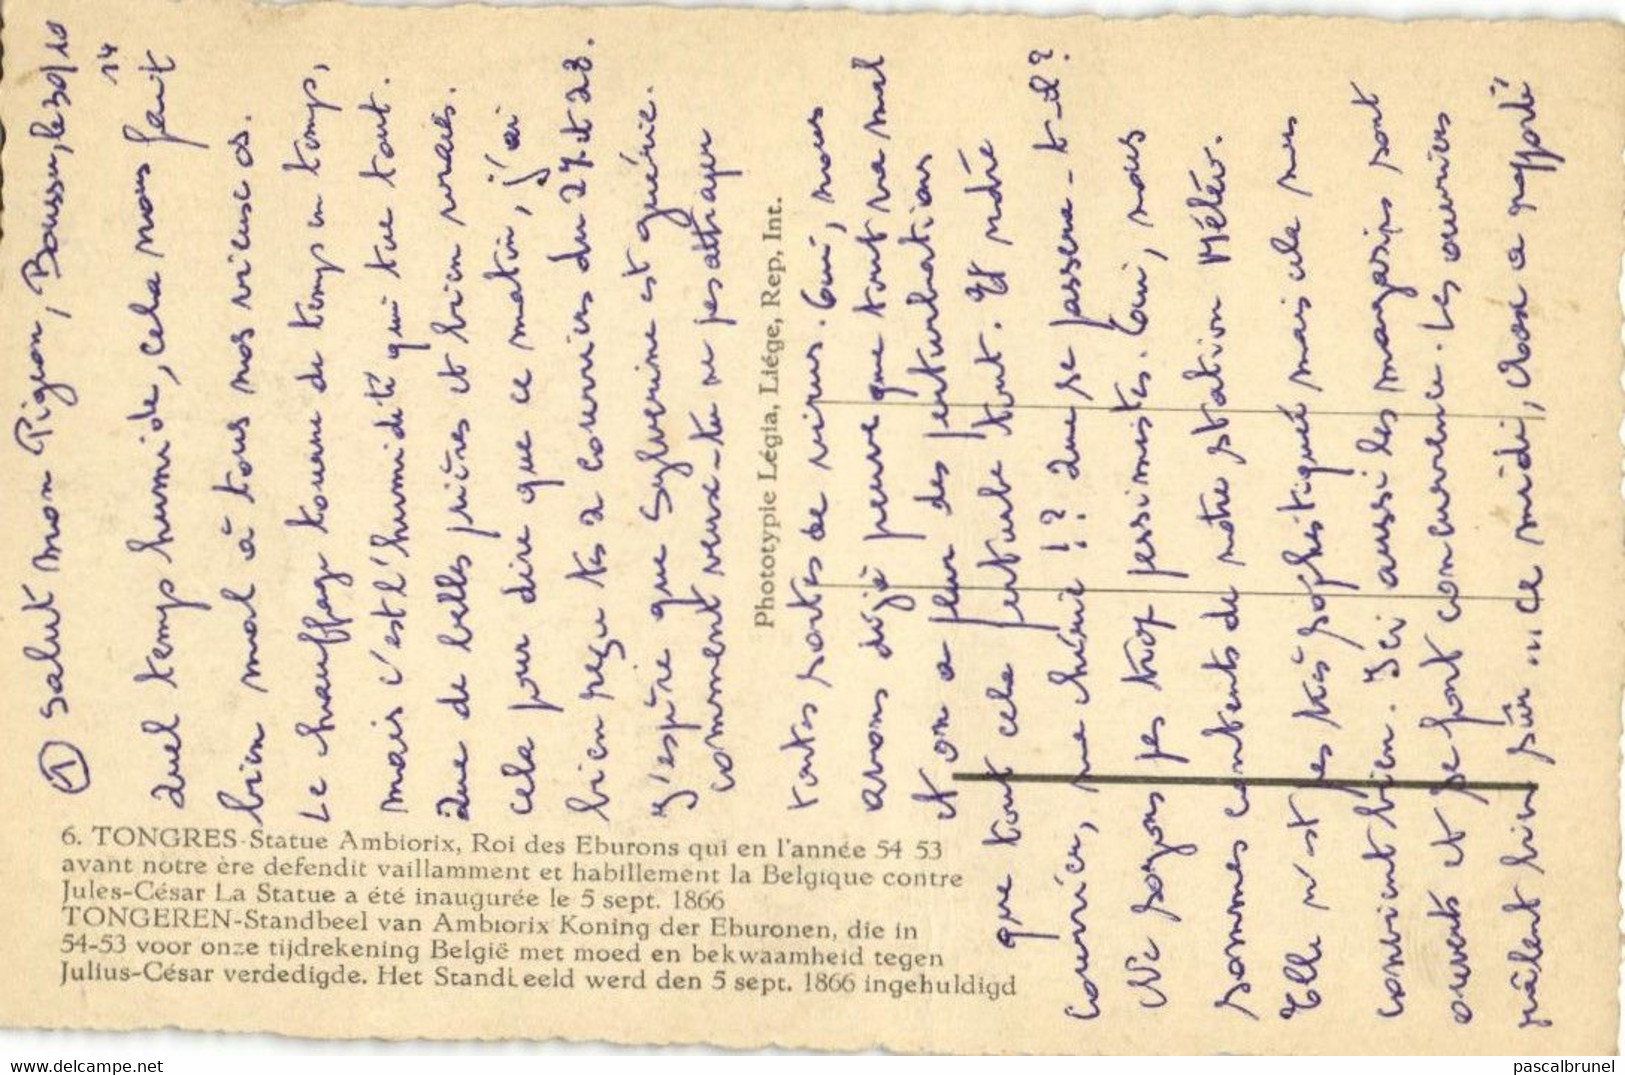 ① Salut mon Pigeon, Boussu, le 30/10
14
Quel temps humide, cela nous fait
bien mal à tous nos vieux os.
Le chauffage tourne de temps en temps,
mais c'est l'humidité qui tue tout.
Que de belles prières et bien vraies.
cela pour dire que ce matin, j'ai
bien reçu tes 2 courriers du 27 et 28.
J'espère que Sylverine est guérie.
comment veux-tu ne pas attraper
toutes sortes de virus. Oui, nous
avons déjà peur que tout va mal
et on a peur des perturbations
que tout cela perturbe tout. Et notre
courrier, ma chérie !? Que se passera-t-il ?
Ne soyons pas trop pessimistes. Oui, nous
sommes contents de notre station Météo.
Elle n'est pas très sophistiqué mais cela nous
convient bien. Ici aussi les magasins sont
ouverts et se font concurrence. Les ouvriers
râlent bien sûr ... Ce midi, a rapporté
Phototypie Légia, Liége, Rep, Int.
6. TONGRES-Statue Ambiorix, Roi des Eburons qui en l'année 54 53
avant notre ère defendit vaillamment et habillement la Belgique contre
Jules-César La Statue a été inaugurée le 5 sept. 1866
TONGEREN-Standbeel van Ambiorix Koning der Eburonen, die in
54-53 voor onze tijdrekening België met moed en bekwaamheid tegen
Julius-César verdedigde. Het Standbeeld werd den 5 sept. 1866 ingehuldigd
delcampe.net
pascalbrunel